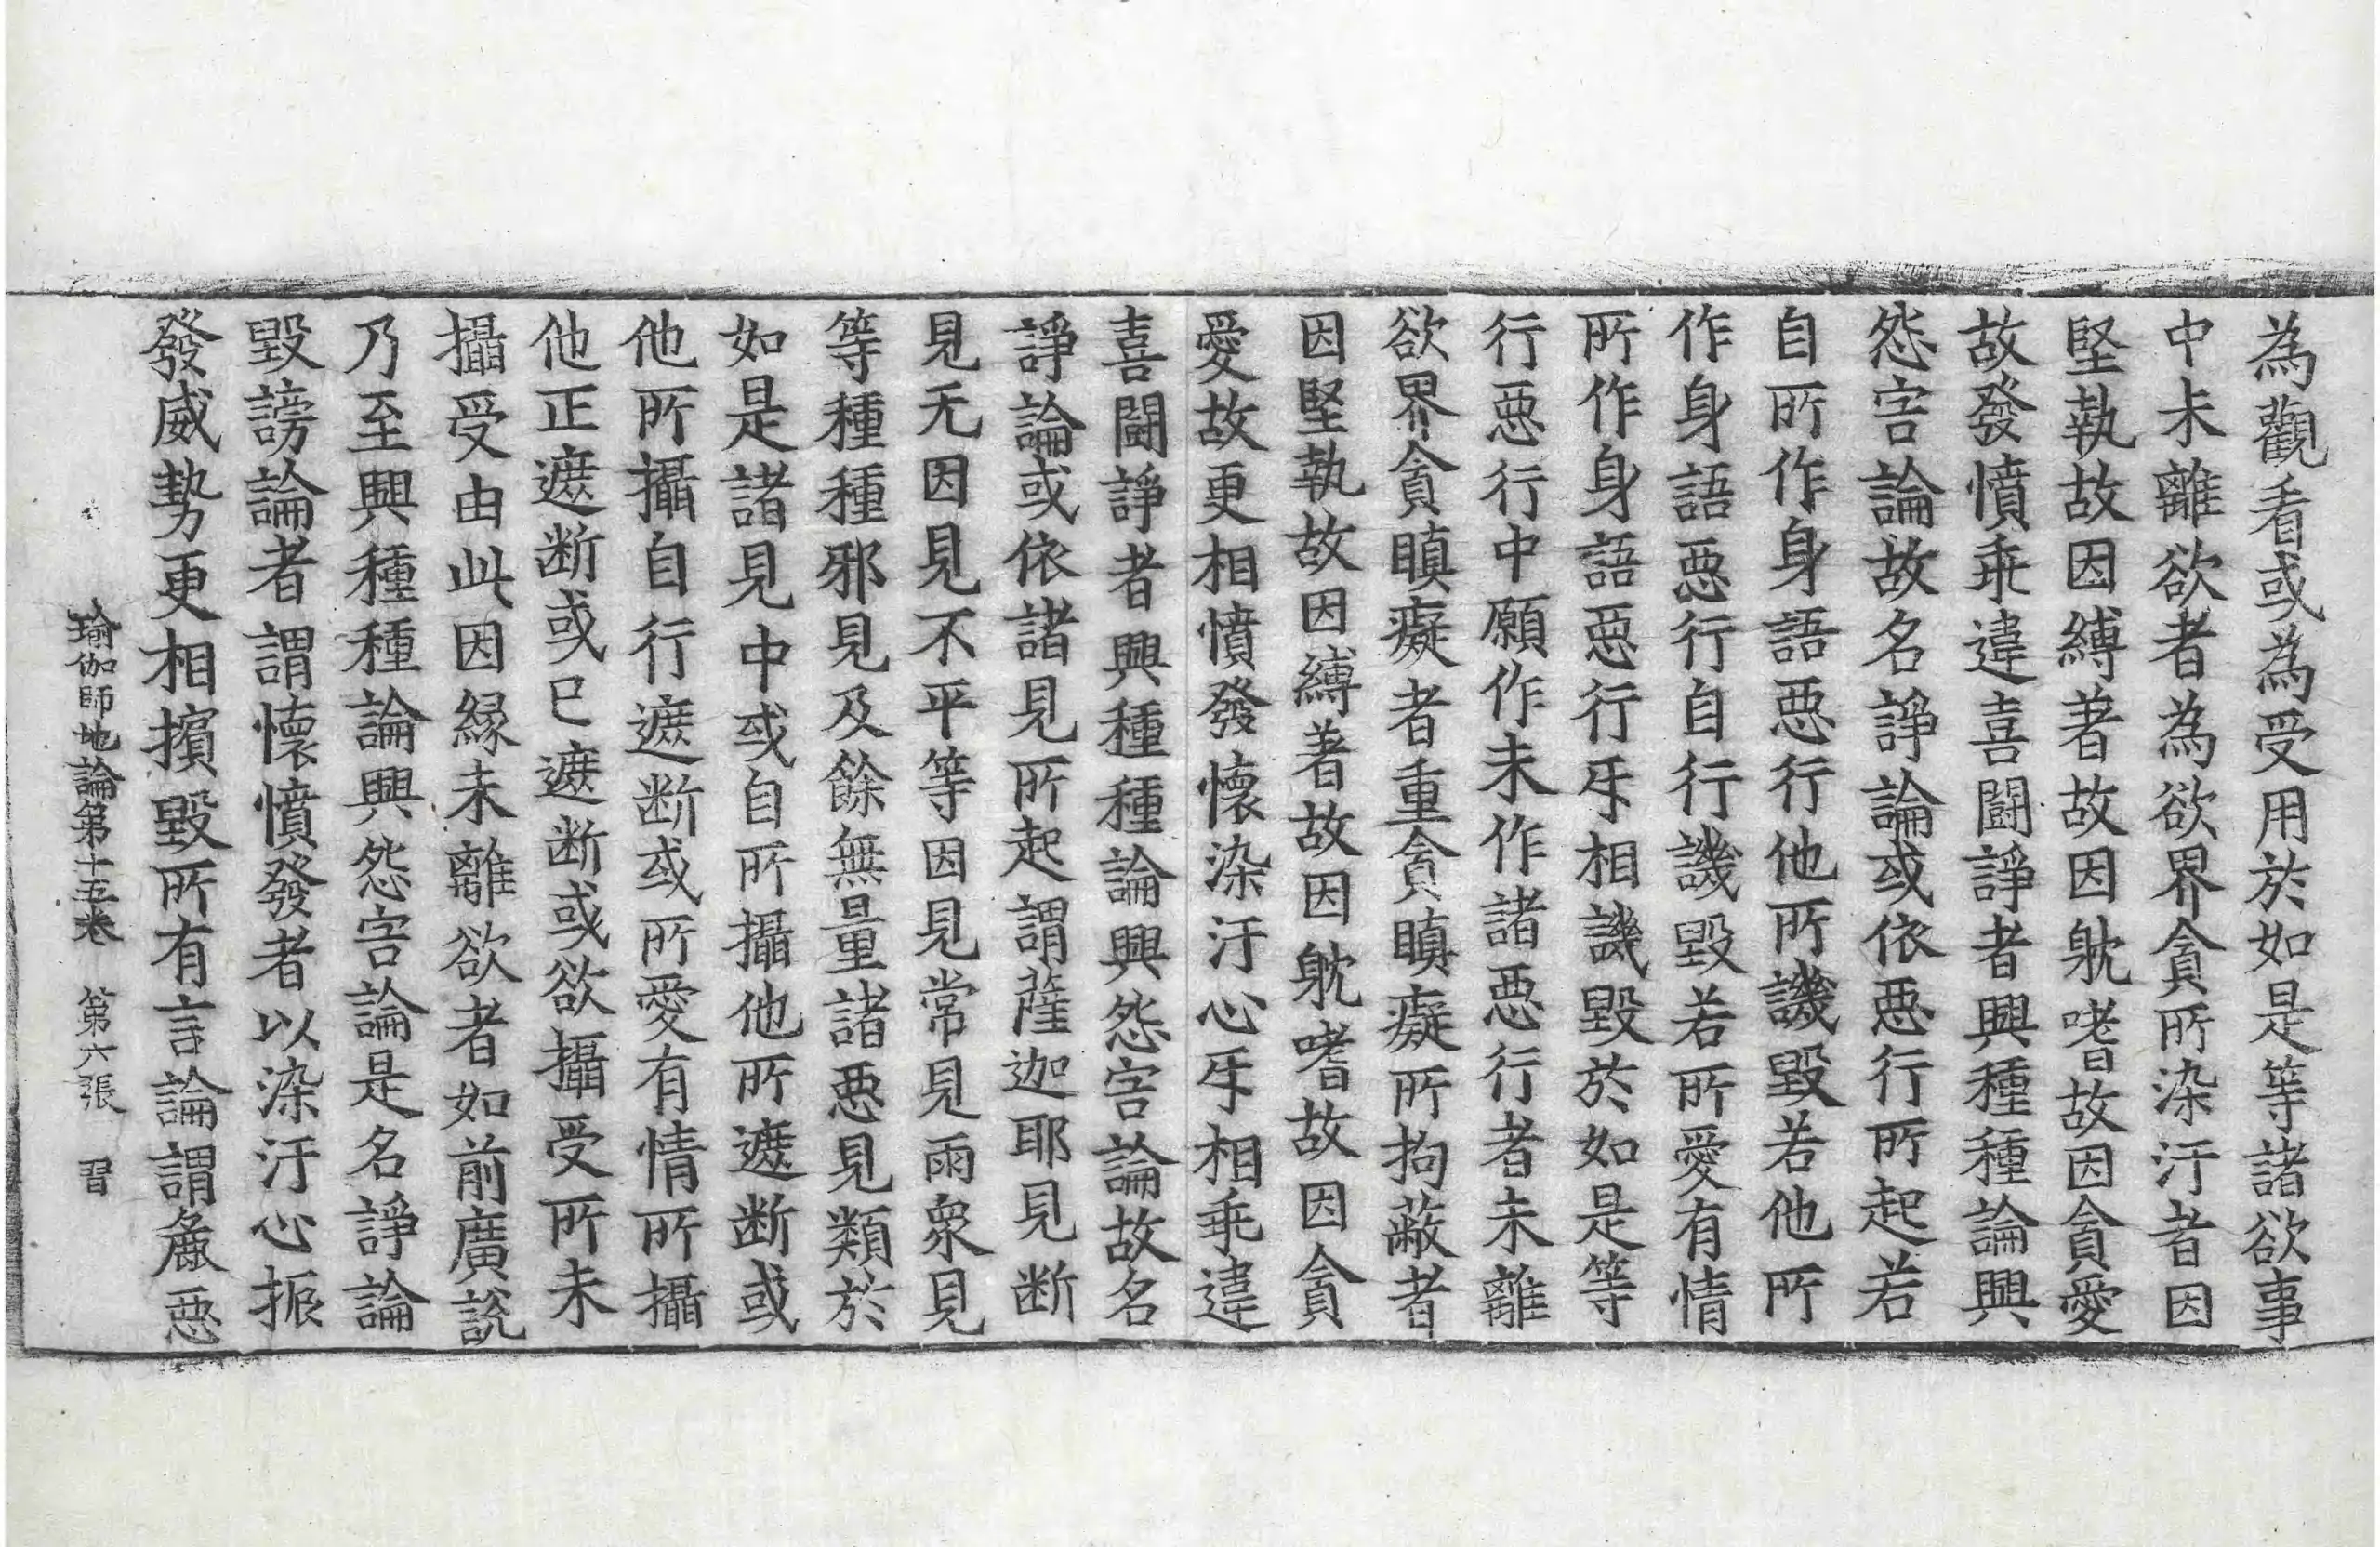 為觀看或為受用於如是等諸欲事
中未離欲者為欲界貪所染汙者因
堅執故因縛著故因躭嗜故因貪愛
故發憤乖違喜鬪諍者興種種論興
怨害論故名諍論或依惡行所起若
自所作身語惡行他所譏毀若他所
作身語惡行自行譏毀若所愛有情
所作身語惡行互相譏毀於如是等
行惡行中願作未作諸惡行者未離
欲界貪瞋癡者重貪瞋癡所拘蔽者
因堅執故因縛著故因躭嗜故因貪
愛故更相憤發懷染汙心互相乖違
喜鬪諍者興種種論興怨害論故名
諍論或依諸見所起謂薩迦耶見断
見无因見不平等因見常見雨衆見
等種種邪見及餘無量諸惡見類於
如是諸見中或自所攝他所遮断或
他所攝自行遮断或所愛有情所攝
他正遮断或已遮断或欲攝受所未
攝受由此因緣未離欲者如前廣說
乃至興種種論興怨害論是名諍論
毀謗論者謂懷憤發者以染汙心振
發威勢更相擯毀所有言論謂麁惡
瑜伽師地論第十五卷　第六張　習